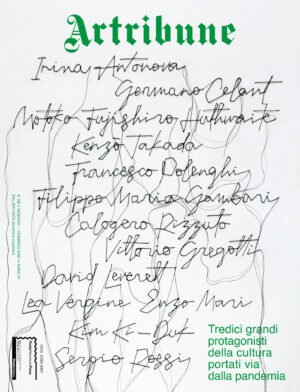 Artribune
Irina Antonova
Germano Celant
Motoko Fujishiro Huthwaite
Kenzo Takada
Francesco Dolenghi
Filippo Maria Gambari
Calogero Rizzuto
Vittorio Gregotti
David Leverett
Lea Vergine Enzo Mari
Kim Ki-Duk
Sergio Rossi
Tredici grandi
protagonisti
della cultura
portati via
dalla pandemia